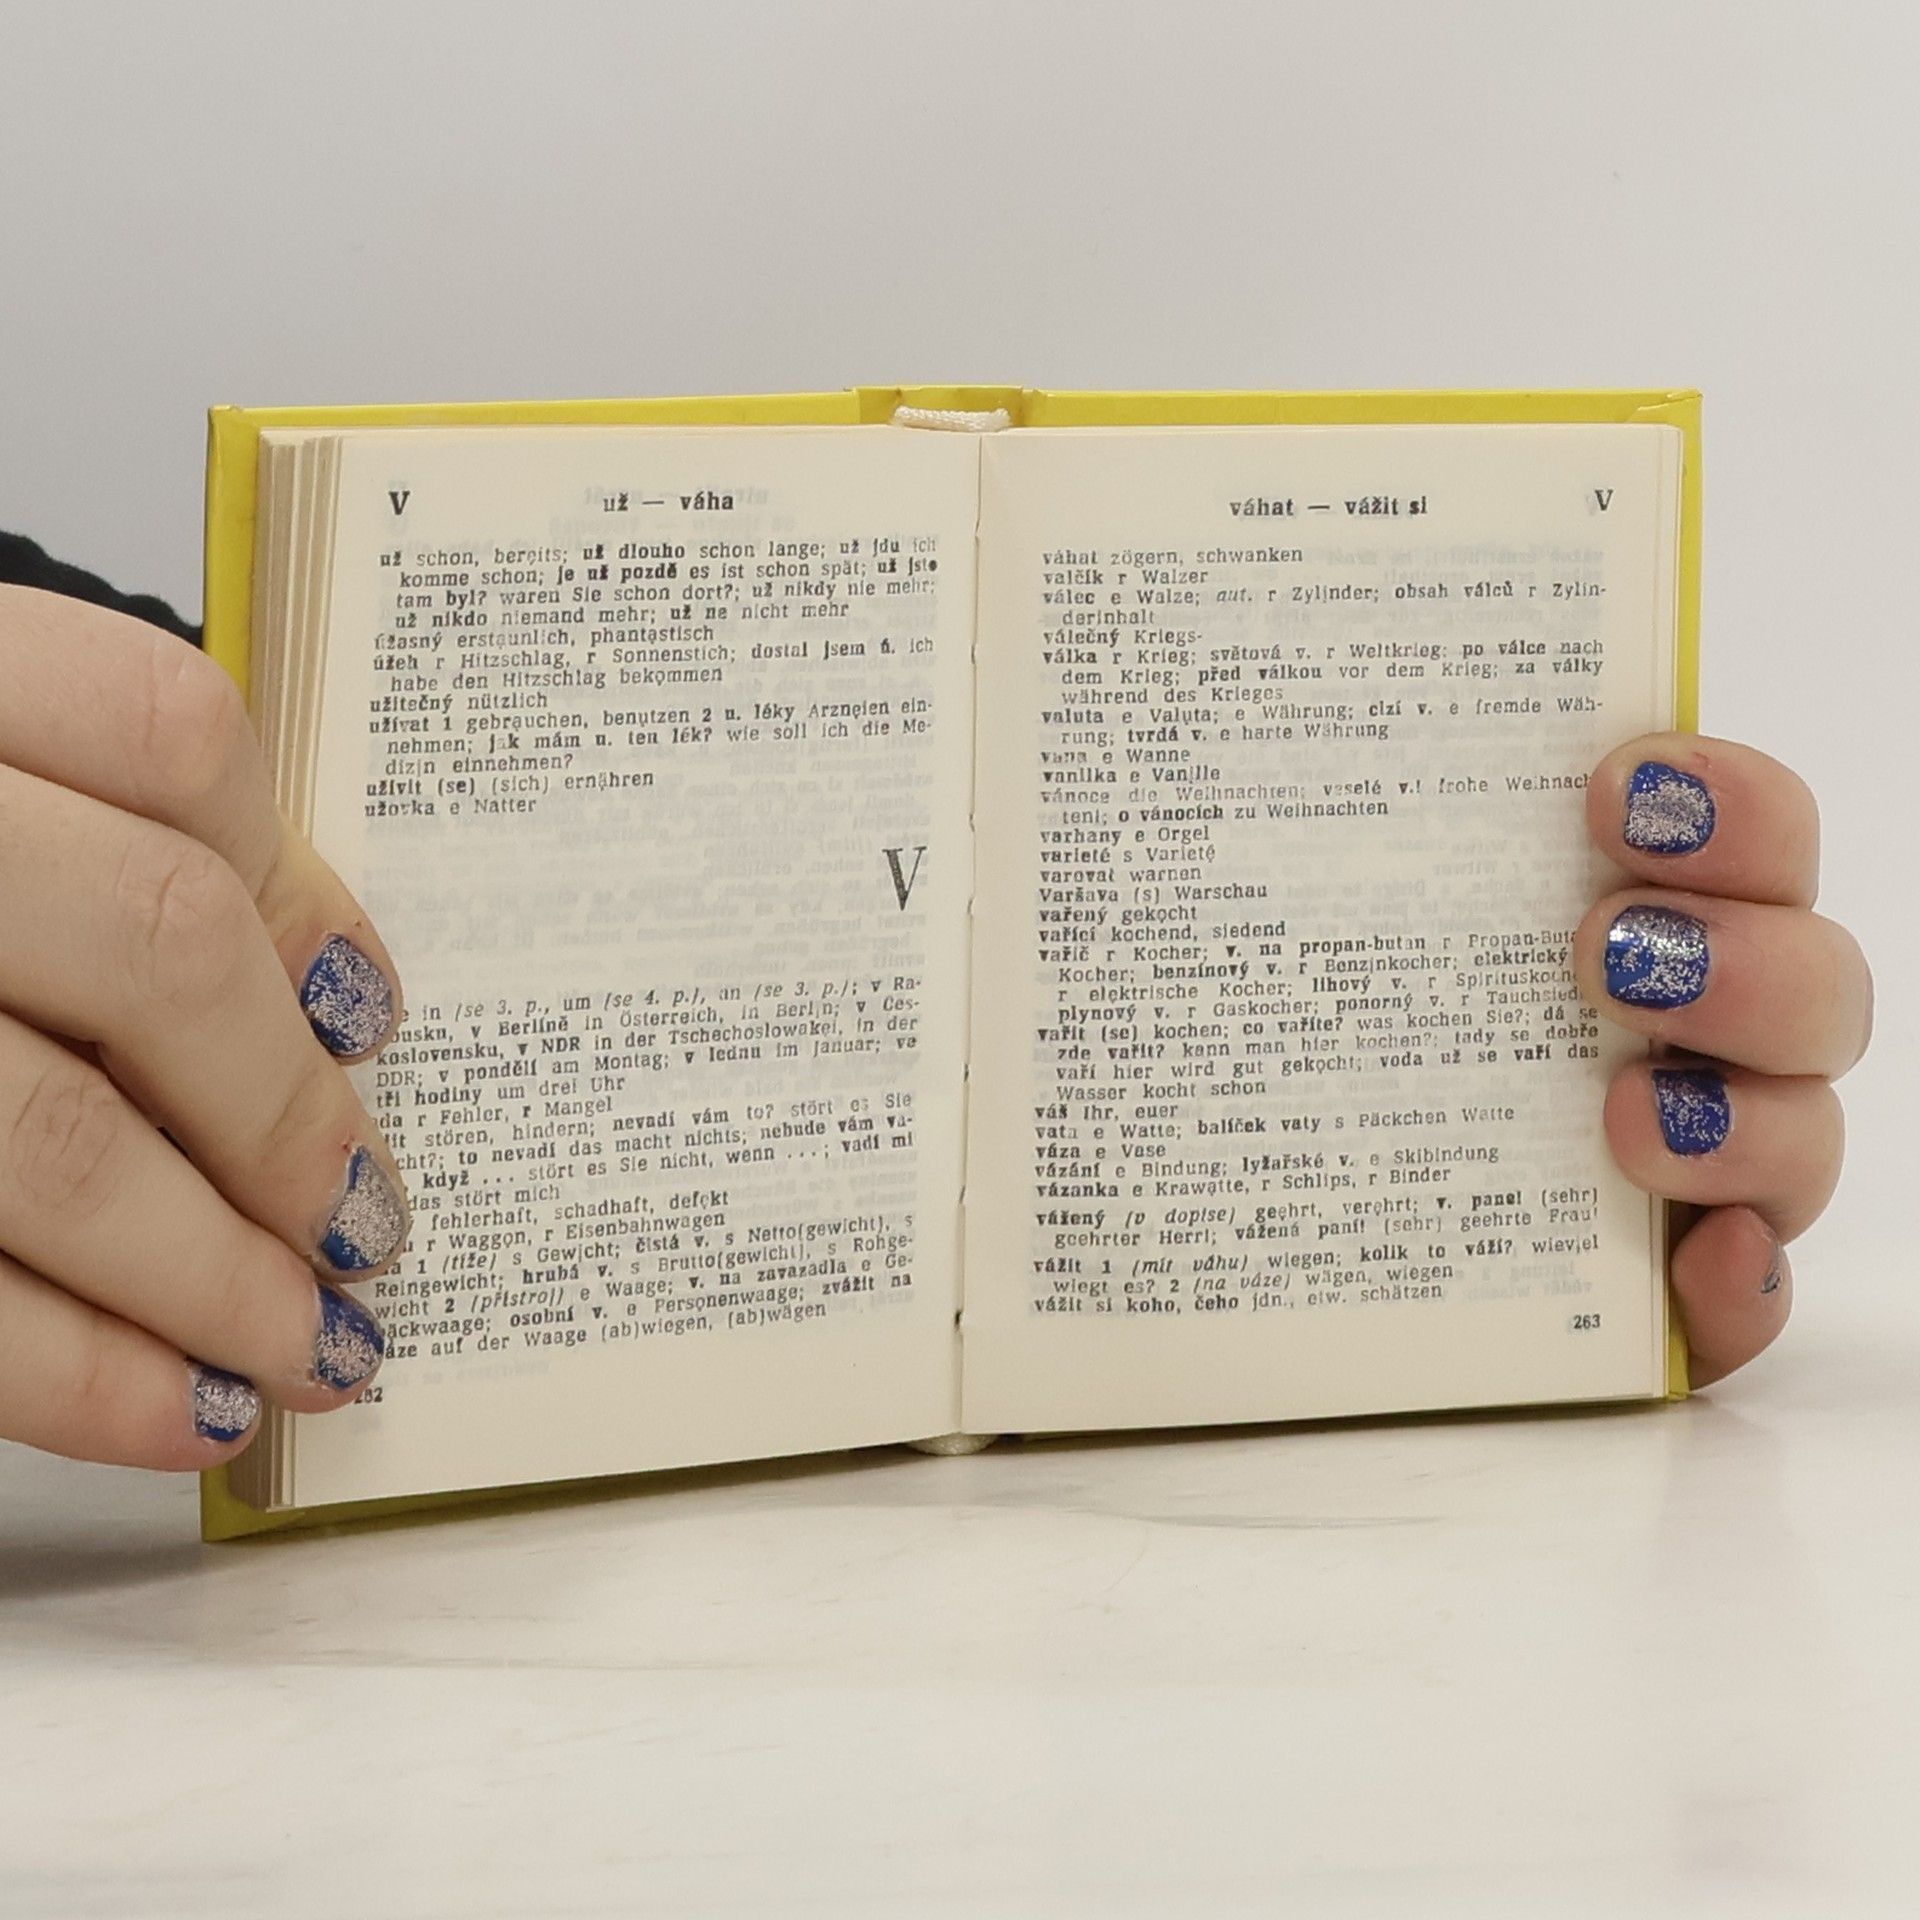 V
už — váha
už schon, bereits; už dlouho schon lange; už jdu ich
komme schon; je už pozdě es ist schon spät; už jste
tam byl? waren Sie schon dort?; už nikdy nie mehr;
už nikdo niemand mehr; už ne nicht mehr
úžasný erstaunlich, phantastisch
úžeh r Hitzschlag, r Sonnenstich; dostal jsem ú. ich
habe den Hitzschlag bekommen
užitečný nützlich
užívat 1 gebrauchen, benutzen 2 u. léky Arzneien ein-
nehmen; jak mám u. ten lék? wie soll ich die Me-
dizin einnehmen?
uživit (se) (sich) ernähren
užovka e Natter
V
in (se 3. p., um (se 4. p.), an (se 3. p.); v Ra-
kousku, v Berlíně in Österreich, in Berlin; v Čes-
koslovensku, v NDR in der Tschechoslowakei, in der
DDR; v pondělí am Montag; v lednu im Januar; ve
tři hodiny um drei Uhr
r Fehler, r Mangel
stören, hindern; nevadí vám to? stört es Sie
nicht?; to nevadí das macht nichts; nebude vám va-
když ... stört es Sie nicht, wenn ...; vadí mi
das stört mich
fehlerhaft, schadhaft, defekt
r Waggon, r Eisenbahnwagen
1 (tíže) s Gewicht; čistá v. s Netto(gewicht), s
Reingewicht; hrubá v. s Brutto(gewicht), s Rohge-
wicht 2 (přístroj) e Waage; v. na zavazadla e Ge-
päckwaage; osobní v. e Personenwaage; zvážit na
váze auf der Waage (ab)wiegen, (ab)wägen
262
váhat — vážit si
V
váhat zögern, schwanken
valčík r Walzer
válec e Walze; aut. r Zylinder; obsah válců r Zylin-
derinhalt
válečný Kriegs-
válka r Krieg; světová v. r Weltkrieg; po válce nach
dem Krieg; před válkou vor dem Krieg; za války
während des Krieges
valuta e Valuta; e Währung; cizí v. e fremde Wäh-
rung; tvrdá v. e harte Währung
vana e Wanne
vanilka e Vanille
vánoce die Weihnachten; veselé v.! frohe Weihnach-
ten!; o vánocích zu Weihnachten
varhany e Orgel
varieté s Varieté
varovat warnen
Varšava (s) Warschau
vařený gekocht
vařící kochend, siedend
vařič r Kocher; v. na propan-butan r Propan-Butan-
Kocher; benzínový v. r Benzinkocher; elektrický
r elektrische Kocher; lihový v. r Spirituskocher
plynový v. r Gaskocher; ponorný v. r Tauchsieder
vařit (se) kochen; co vaříte? was kochen Sie?; dá se
zde vařit? kann man hier kochen?; tady se dobře
vaří hier wird gut gekocht; voda už se vaří das
Wasser kocht schon
váš Ihr, euer
vata e Watte; balíček vaty s Päckchen Watte
váza e Vase
vázání e Bindung; lyžařské v. e Skibindung
vázanka e Krawatte, r Schlips, r Binder
vážený (v dopise) geehrt, verehrt; v. pane! (sehr)
geehrter Herr!; vážená paní! (sehr) geehrte Frau!
vážit 1 (mít váhu) wiegen; kolik to váží? wieviel
wiegt es? 2 (na váze) wägen, wiegen
vážit si koho, čeho jdn., etw. schätzen
263